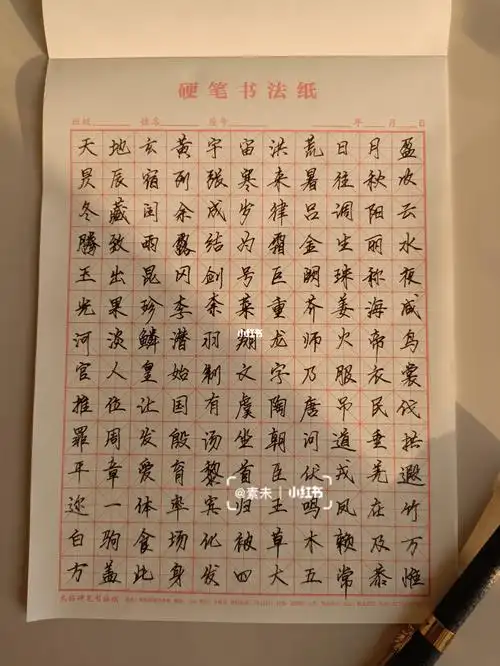 硬笔书法纸
班级 姓名 座号 年 月 日
天地玄黄宇宙洪荒日月盈
昃辰宿列张寒来暑往秋收
冬藏闰余成岁律吕调阳云
腾致雨露结为霜金生丽水
玉出昆冈剑号巨阙珠称夜
光果珍李柰菜重芥姜海咸
河淡鳞潜羽翔龙师火帝鸟
官人皇始制文字乃服衣裳
推位让国有虞陶唐吊民伐
罪周发殷汤坐朝问道垂拱
平章爱育黎首臣伏戎羌遐
迩一体率宾归王鸣凤在竹
白驹食场化被草木赖及万
方盖此身发四大五常恭惟
小红书
@素未 小红书